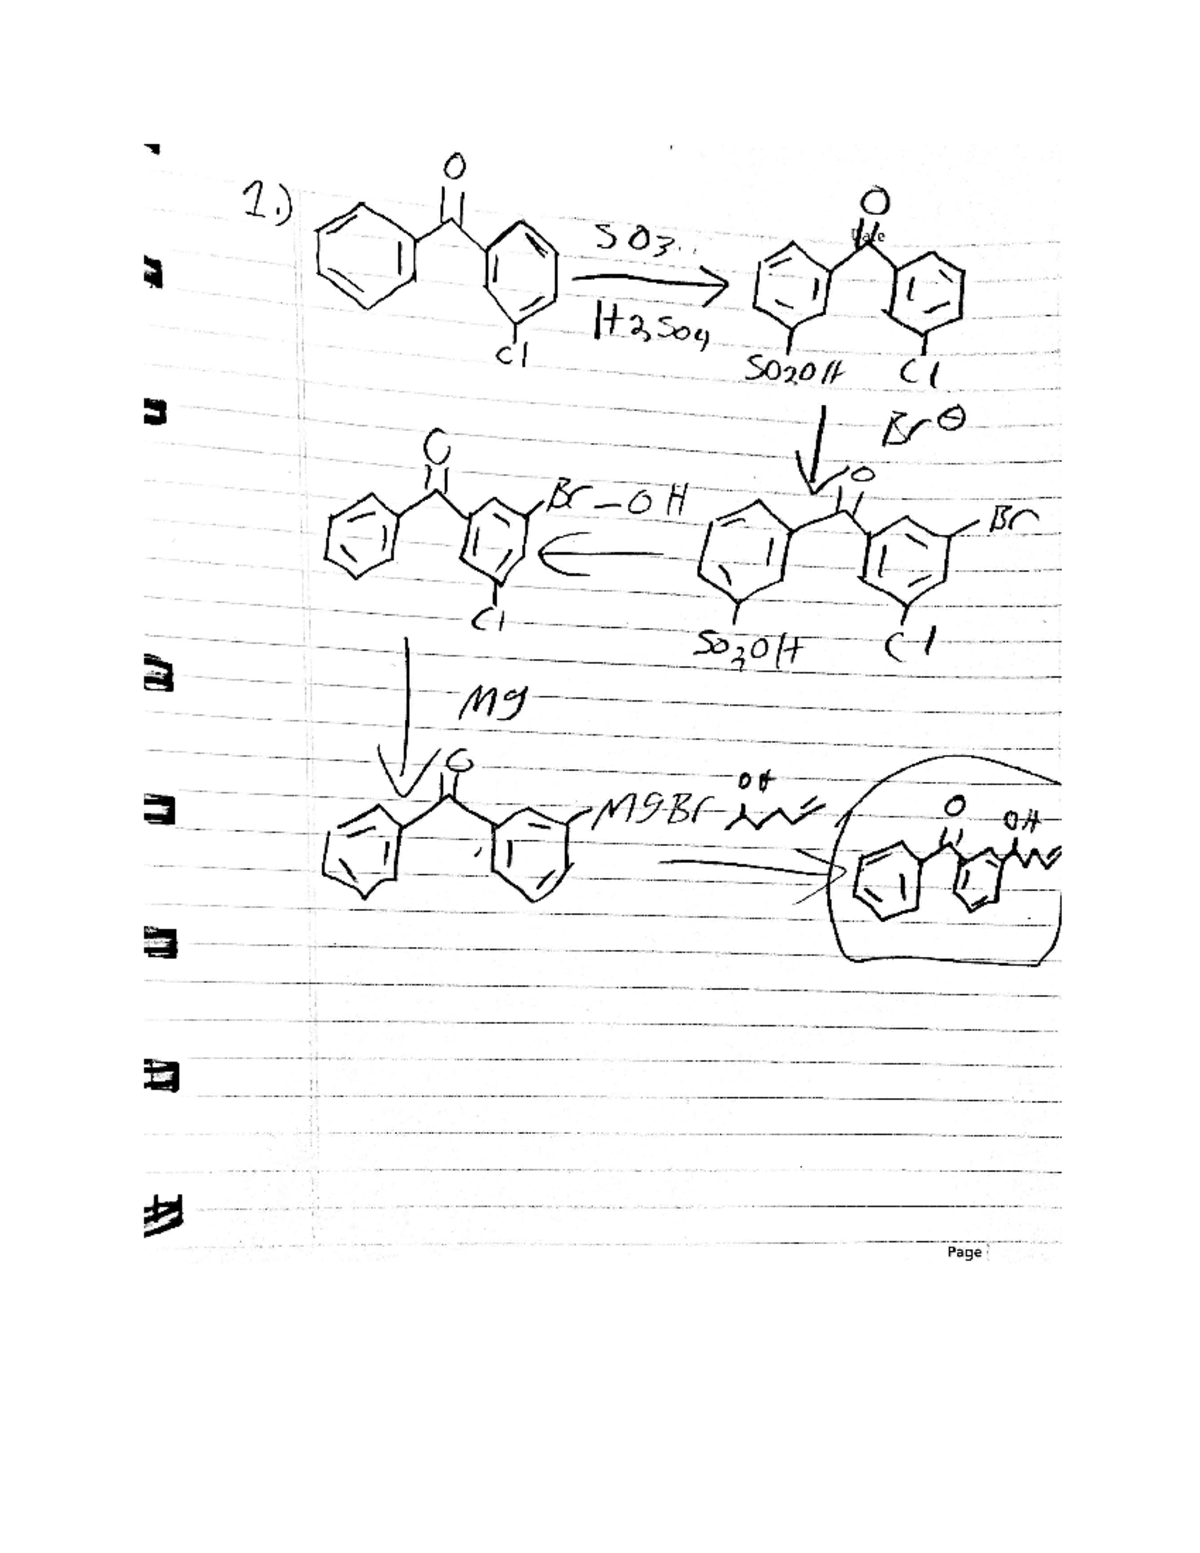 1.)
O
Cl
SO3
H2SO4
O
Date
SO2OH
Cl
Br⊖
O
Br
SO2OH
Cl
O
Br
-OH
Cl
Mg
O
MgBr
OH
O
OH
Page